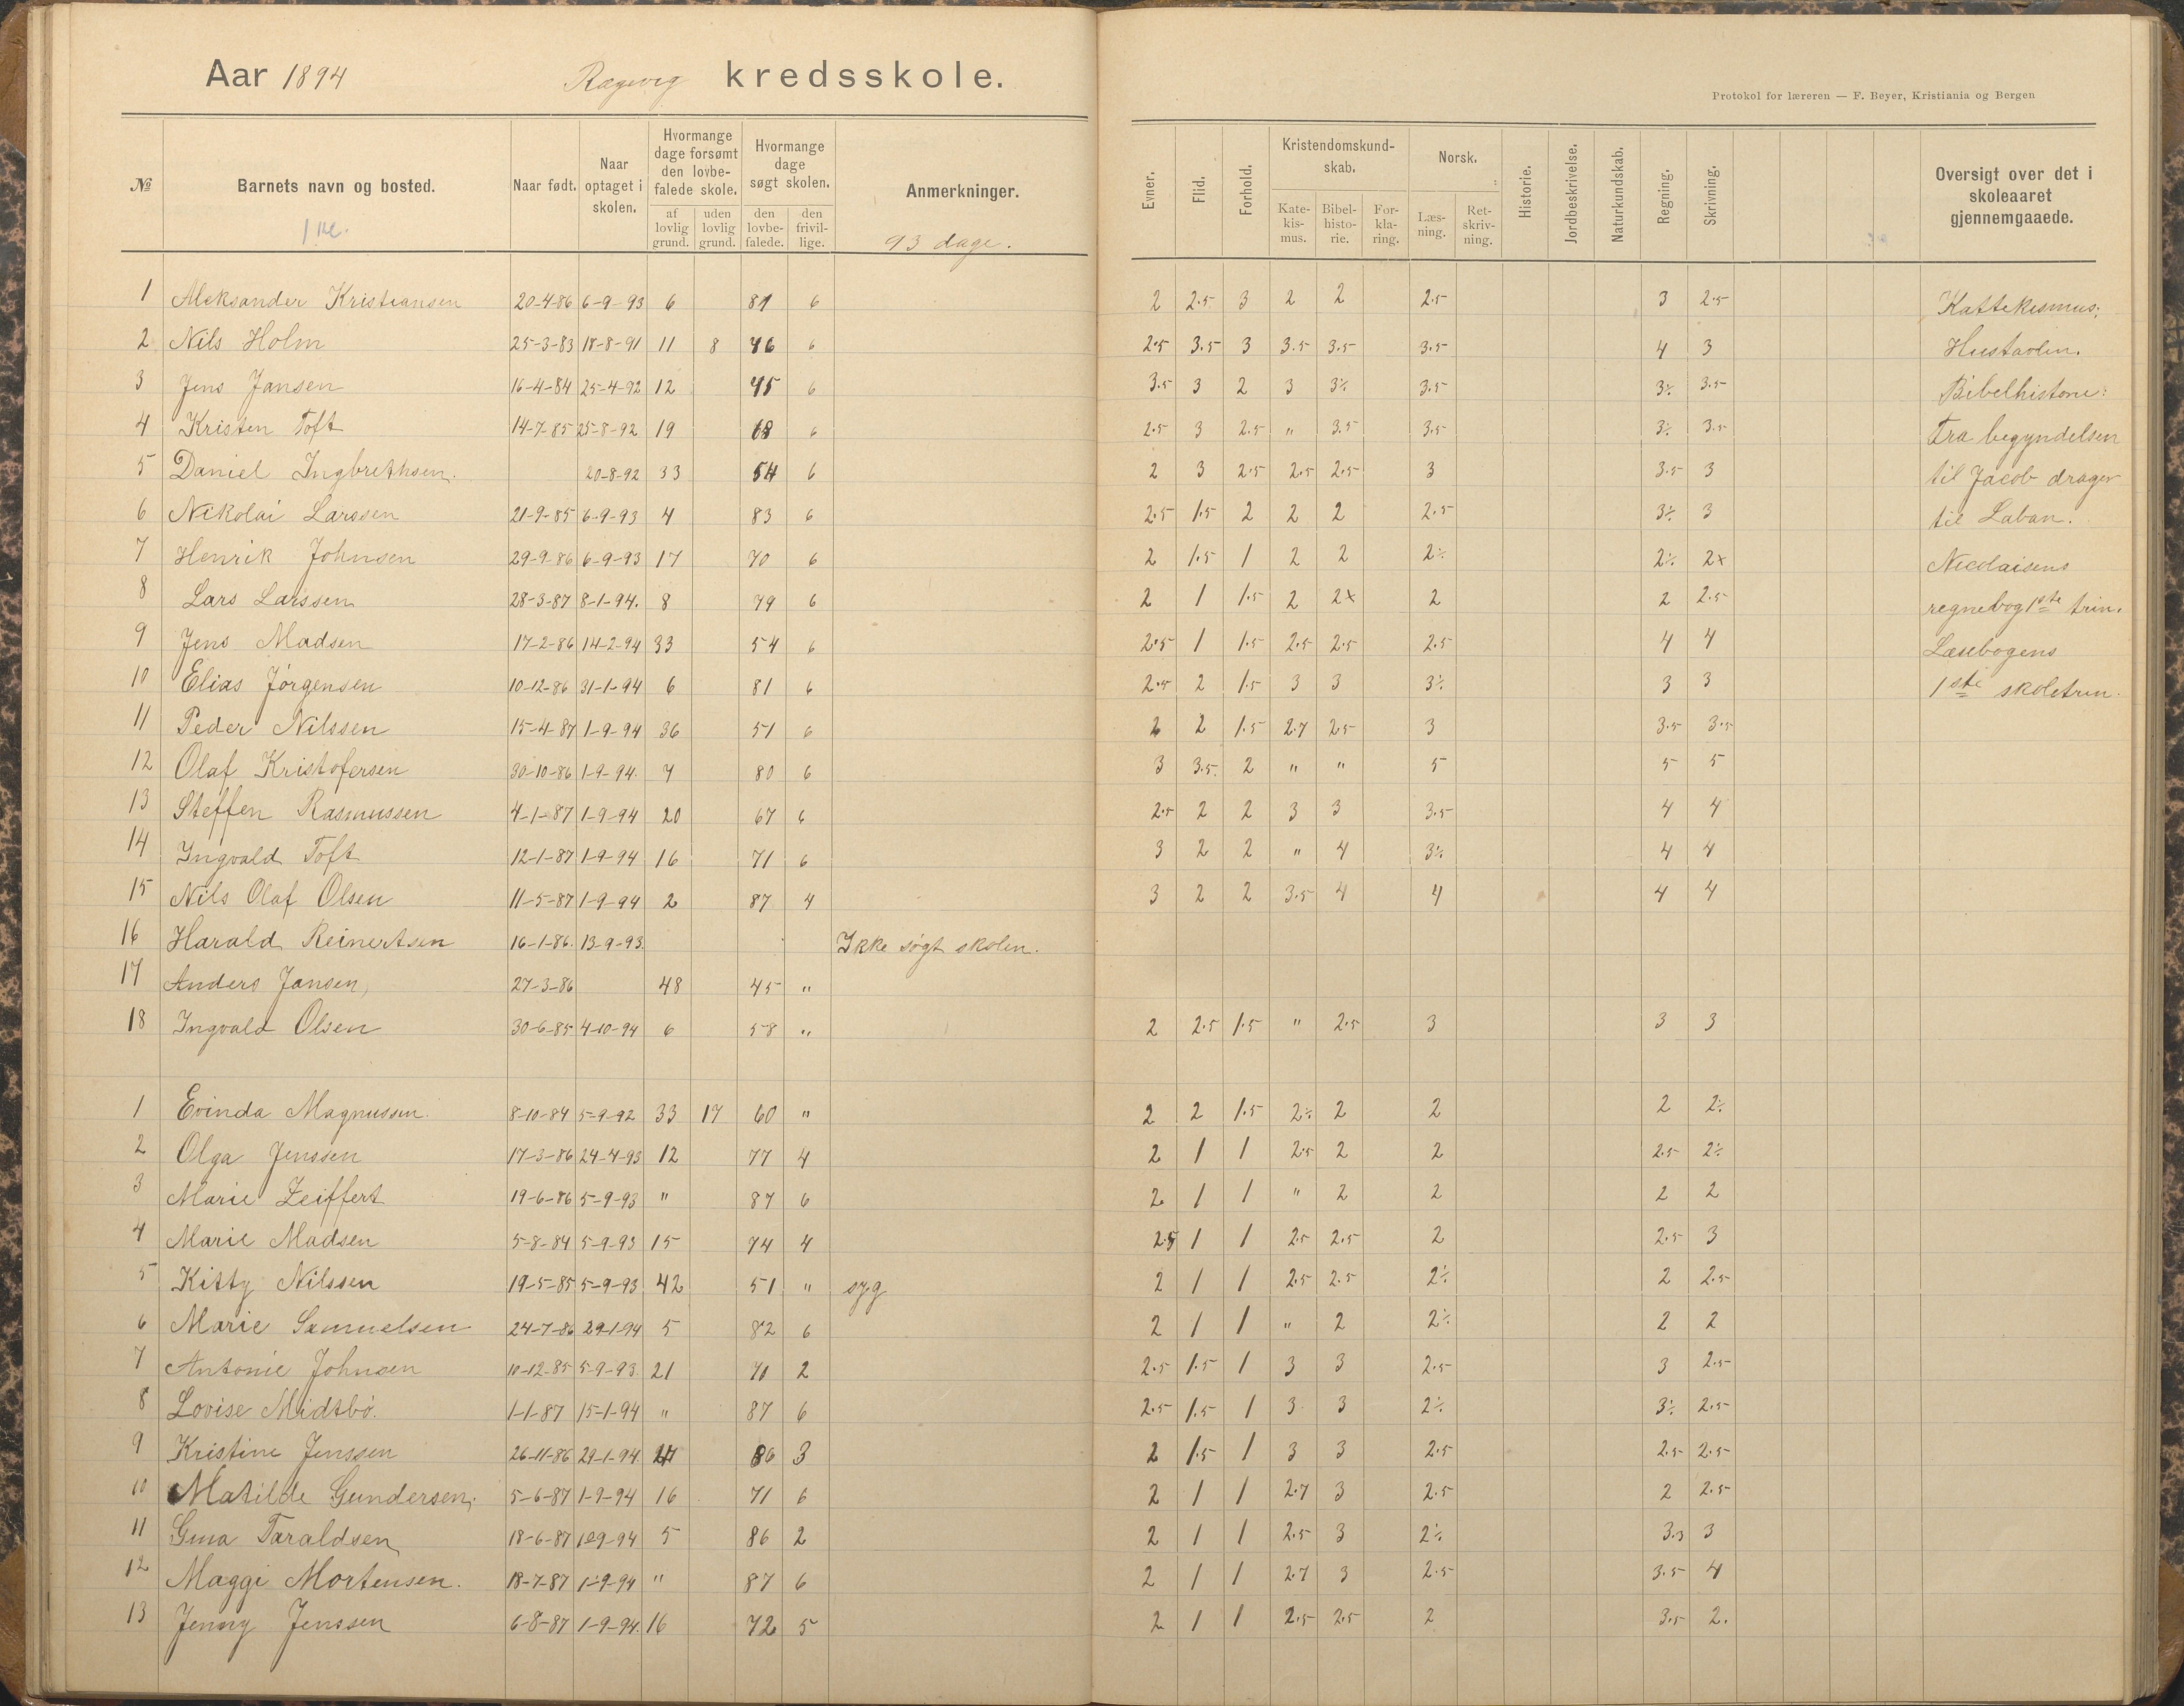 Aar 1894 Ragevig kredsskole.
Protokol for læreren — F. Beyer, Kristiania og Bergen
№ Barnets navn og bosted. Naar født. Naar optaget i skolen. Hvormange dage forsømt den lovbefalede skole. af lovlig grund. uden lovlig grund. Hvormange dage søgt skolen. den lovbefalede. den frivillige. Anmerkninger. Evner. Flid. Forhold. Kristendomskundskab. Katekismus. Bibelhistorie. Forklaring. Norsk. Læsning. Retskrivning. Historie. Jordbeskrivelse. Naturkundskab. Regning. Skrivning. Oversigt over det i skoleaaret gjennemgaaede.
1 kl. 93 dage.
1 Aleksander Kristiansen 20-4-86 6-9-93 6 81 6 2 2.5 3 2 2 2.5 3 2.5 Kattekismus;
2 Nils Holm 25-3-83 18-8-91 11 8 46 6 2.5 3.5 3 3.5 3.5 3.5 4 3 Hustavlen.
3 Jens Jansen 16-4-84 25-4-92 12 45 6 3.5 3 2 3 3⁒ 3.5 3⁒ 3.5 Bibelhistorie:
4 Kristen Toft 14-7-85 25-8-92 19 68 6 2.5 3 2.5 " 3.5 3.5 3⁒ 3.5 Fra begyndelsen
5 Daniel Ingbrethsen. 20-8-92 33 54 6 2 3 2.5 2.5 2.5 3 3.5 3 til Jacob drager
6 Nikolai Larssen 21-9-85 6-9-93 4 83 6 2.5 1.5 2 2 2 2.5 3⁒ 3 til Laban.
7 Henrik Johnsen 29-9-86 6-9-93 17 70 6 2 1.5 1 2 2 2⁒ 2⁒ 2x Nicolaisens
8 Lars Larssen 28-3-87 8-1-94. 8 79 6 2 1 1.5 2 2x 2 2 2.5 regnebog 1ste trin.
9 Jens Madsen 17-2-86 14-2-94 33 54 6 2.5 1 1.5 2.5 2.5 2.5 4 4 Læsebogens
10 Elias Jørgensen 10-12-86 31-1-94 6 81 6 2.5 2 1.5 3 3 3⁒ 3 3 1ste skoletrin.
11 Peder Nilssen 15-4-87 1-9-94 36 51 6 2 2 1.5 2.7 2.5 3 3.5 3.5
12 Olaf Kristofersen 30-10-86 1-9-94. 7 80 6 3 3.5 2 " " 5 5 5
13 Steffen Rasmussen 4-1-87 1-9-94 20 67 6 2.5 2 2 3 3 3.5 4 4
14 Ingvald Toft 12-1-87 1-9-94 16 71 6 3 2 2 " 4 3⁒ 4 4
15 Nils Olaf Olsen 11-5-87 1-9-94 2 87 4 3 2 2 3.5 4 4 4 4
16 Harald Reinertsen 16-1-86. 13-9-93. Ikke søgt skolen.
17 Anders Jansen, 27-3-86 48 45 "
18 Ingvald Olsen 30-6-85 4-10-94 6 58 " 2 2.5 1.5 " 2.5 3 3 3
1 Evinda Magnussen. 8-10-84 5-9-92 33 17 60 " 2 2 1.5 2⁒ 2 2 2 2⁒
2 Olga Jenssen 17-3-86 24-4-93 12 77 4 2 1 1 2.5 2 2 2.5 2⁒
3 Marie Zeiffert 19-6-86 5-9-93 " 87 6 2 1 1 " 2 2 2 2
4 Marie Madsen 5-8-84 5-9-93 15 74 4 2.5 1 1 2.5 2.5 2 2.5 3
5 Kitty Nilssen 19-5-85 5-9-93 42 51 " syg 2 1 1 2.5 2.5 2⁒ 2 2.5
6 Marie Samuelsen 24-7-86 29-1-94 5 82 6 2 1 1 " 2 2⁒ 2 2
7 Antonie Johnsen 10-12-85 5-9-93. 21 70 2 2.5 1.5 1 3 3 2.5 3 2.5
8 Lovise Midtbø. 1-1-87 15-1-94 " 87 6 2.5 1.5 1 3 3 2⁒ 3⁒ 2.5
9 Kristine Jenssen 26-11-86 29-1-94. 86 3 2 1.5 1 3 3 2.5 2.5 2.5
10 Matilde Gundersen, 5-6-87 1-9-94 16 71 6 2 1 1 2.7 3 2.5 2 2.5
11 Gina Taraldsen 18-6-87 1-9-94 5 86 2 2 1 1 2.5 3 2⁒ 3.3 3
12 Maggi Mortensen. 18-7-87 1-9-94 " 87 6 2 1 1 2.7 3 2.5 3.5 4
13 Jenny Jenssen 6-8-87 1-9-94. 16 72 5 2 1 1 2.5 2.5 2 3.5 2.